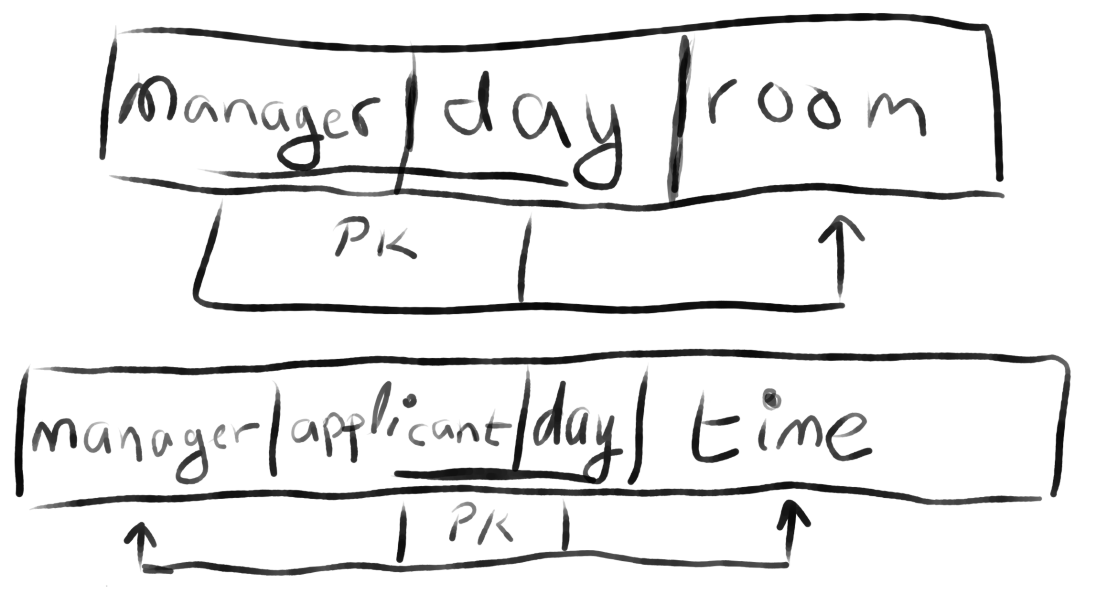 manager day room
PK
manager applicant day time
PK